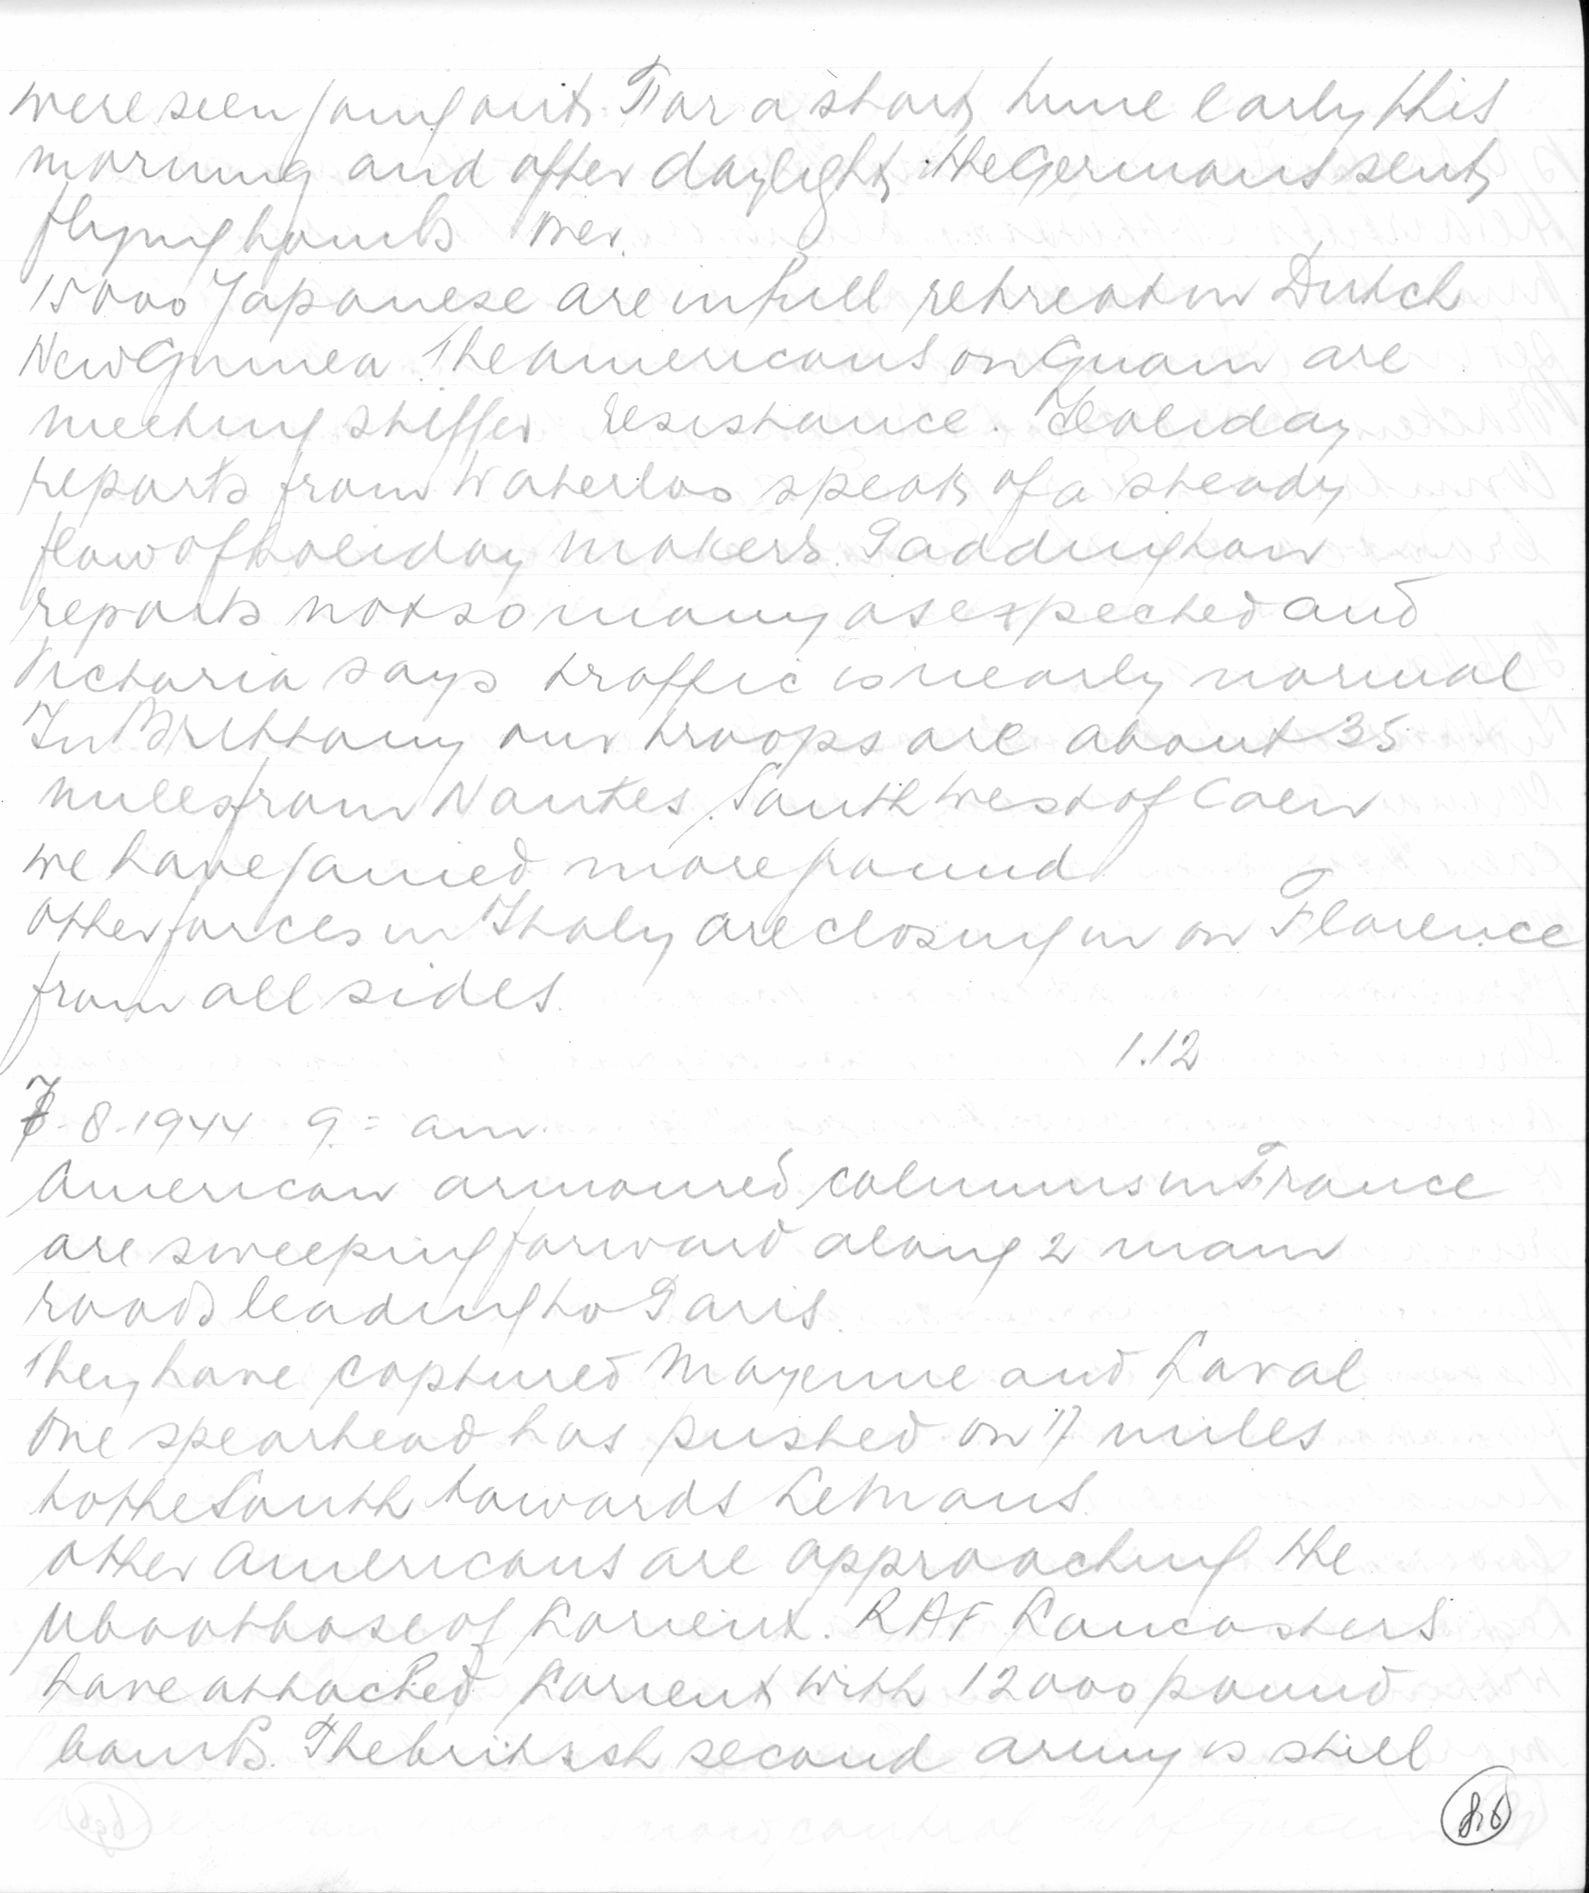 were seen going out. For a short time early this
morning and after daylight the Germans sent
flying bombs over.
15000 Japanese are in full retreat in Dutch
New Guinea. The Americans on Guam are
meeting stiffer resistance. Holiday
reports from Waterloo speak of a steady
flow of holiday makers. Paddington
reports not so many as expected and
Victoria says traffic is nearly normal
In Brittany our troops are about 35
miles from Nantes. South West of Caen
we have gained more ground
other forces in Italy are closing in on Florence
from all sides.
1.12
7-8-1944 9 = am.
American armoured columns in France
are sweeping forward along 2 main
roads leading to Paris.
They have captured Mayenne and Laval
One spearhead has pushed on 17 miles
to the South towards Le Mans.
other Americans are approaching the
Uboat base of Lorient. RAF Lancasters
have attacked Lorient with 12000 pound
bombs. The british second army is still